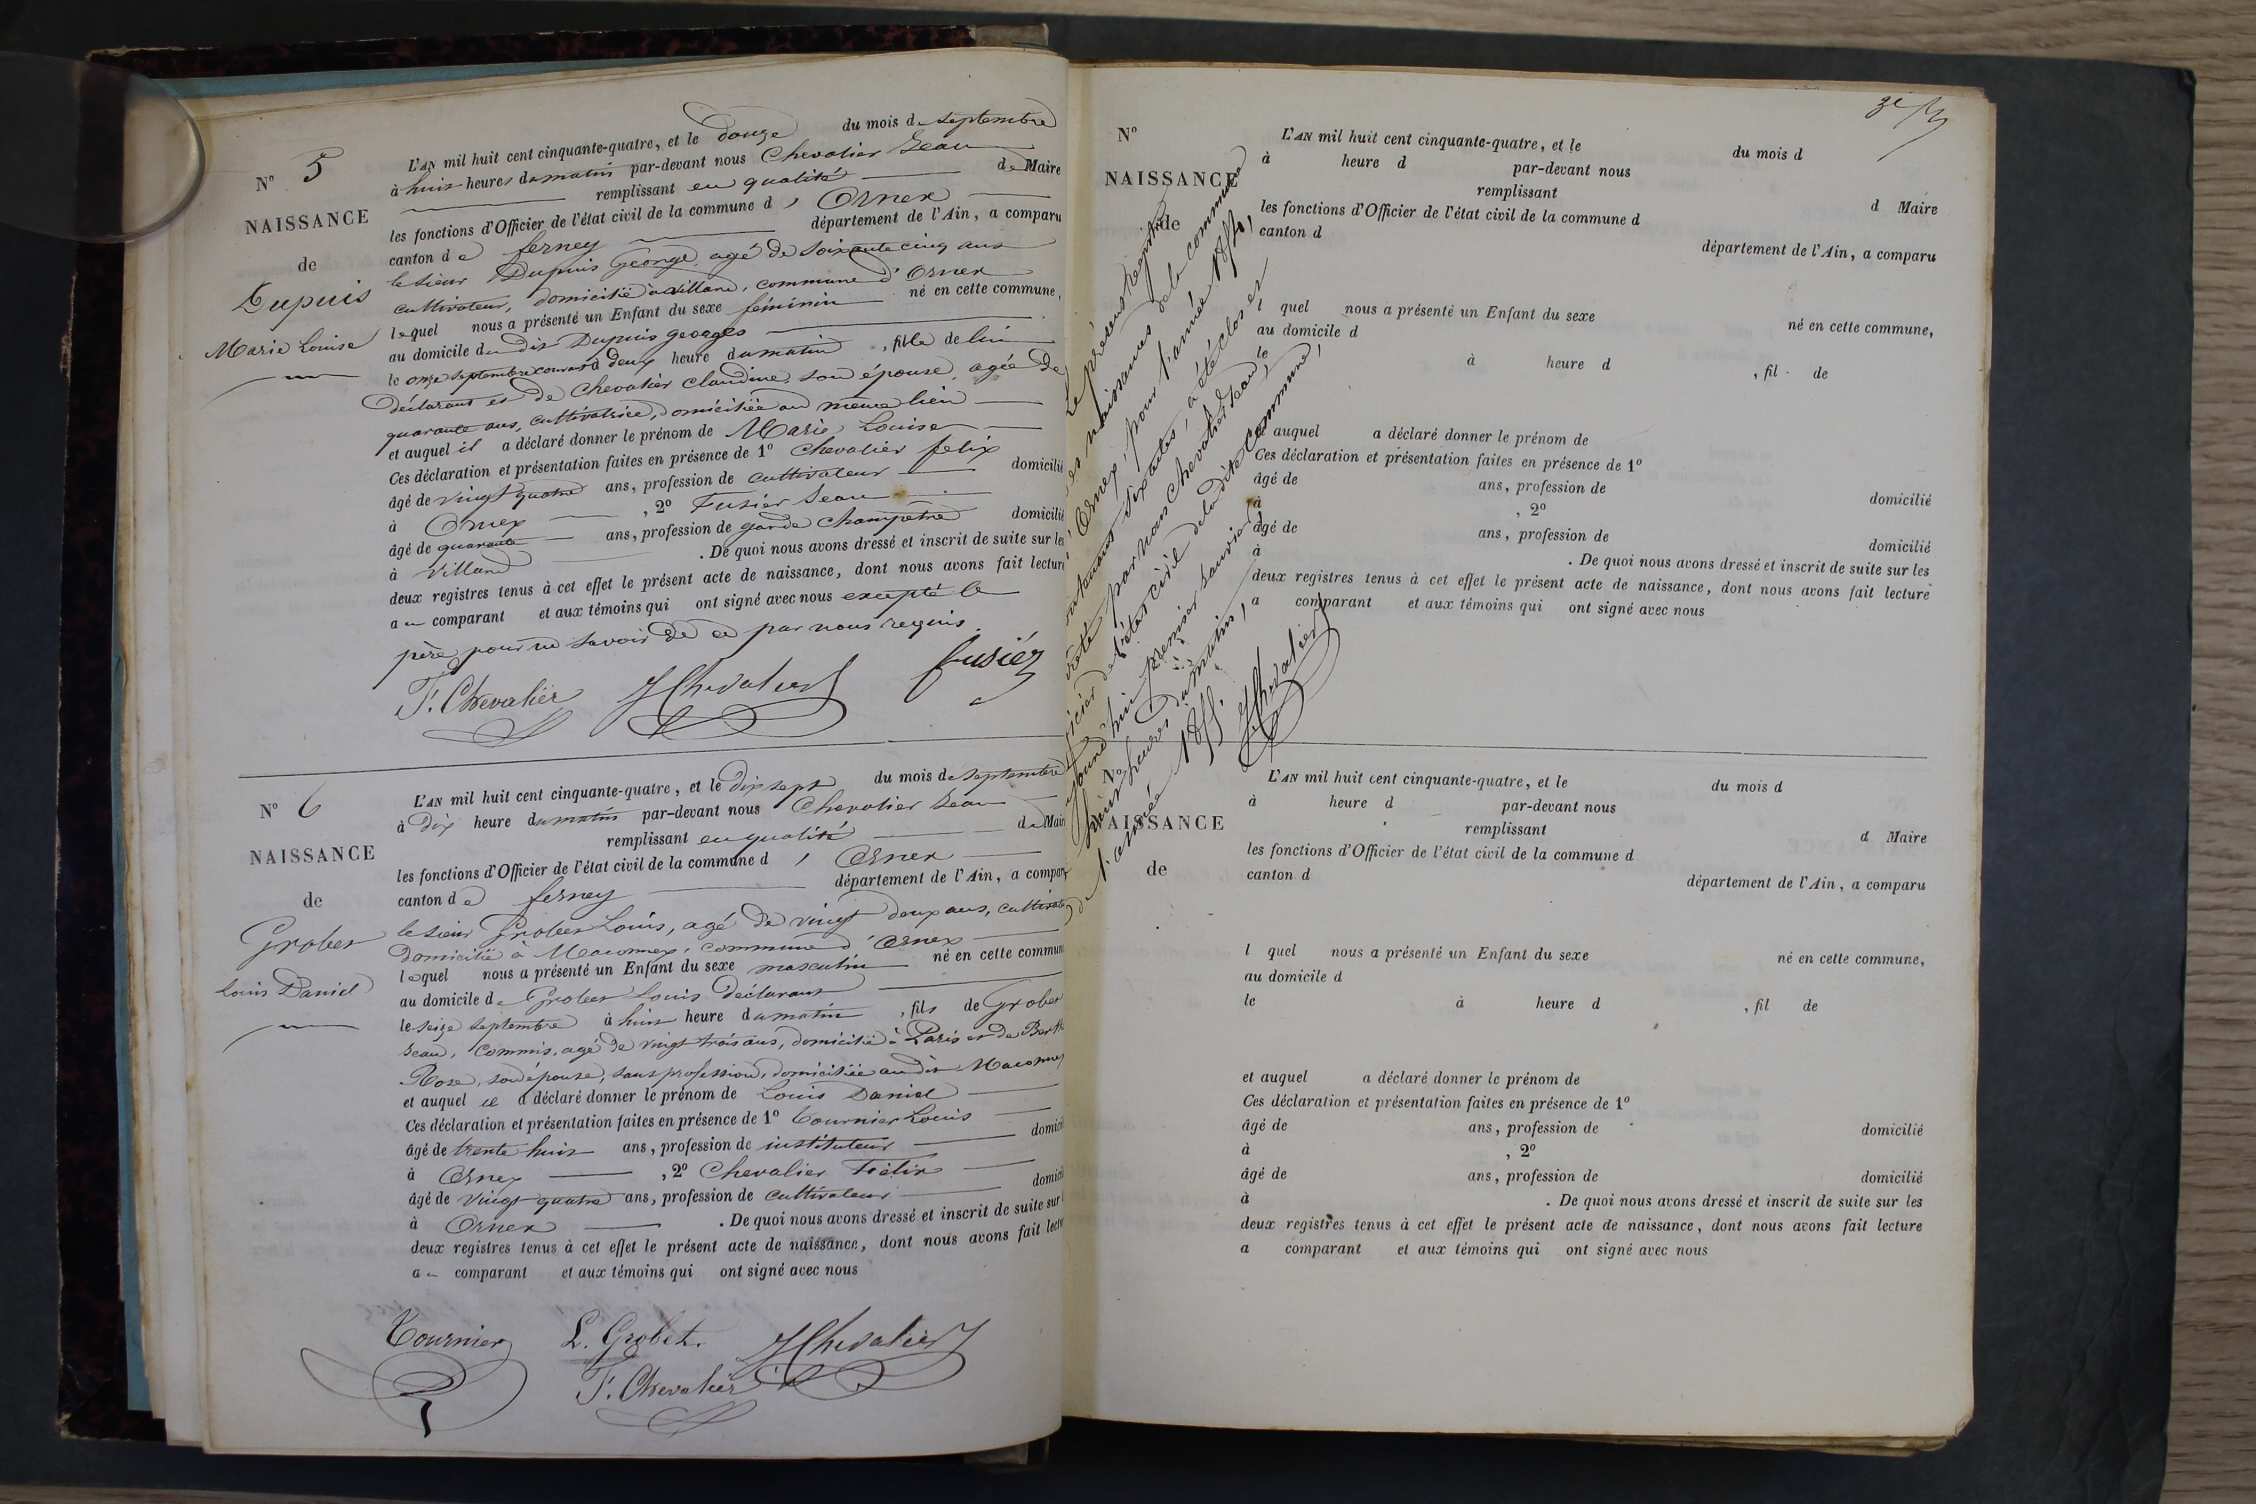 N° 5
NAISSANCE
de
Dupuis
Marie Louise
L'AN mil huit cent cinquante-quatre, et le douze du mois de septembre
à huit heures du matin par-devant nous Chevalier Jean
remplissant en qualité de Maire
les fonctions d'Officier de l'état civil de la commune d'Ornex
canton de ferney département de l'Ain, a comparu
le sieur Dupuis George agé de soixante cinq ans
cultivateur, domicilié à villard, commune d'Ornex
lequel nous a présenté un Enfant du sexe féminin né en cette commune,
au domicile du dit Dupuis georges
le onze septembre courant à deux heure du matin, fille de lui
déclarant et de Chevalier claudine, son épouse, agée de
quarante ans, cultivatrice, domiciliée au même lieu
et auquel il a déclaré donner le prénom de Marie Louise
Ces déclaration et présentation faites en présence de 1° Chevalier felix
âgé de vingt quatre ans, profession de cultivateur domicilié
à Ornex, 2° Fusier Jean
âgé de quarante ans, profession de garde champêtre domicilié
à Villard. De quoi nous avons dressé et inscrit de suite sur les
deux registres tenus à cet effet le présent acte de naissance, dont nous avons fait lecture
au comparant et aux témoins qui ont signé avec nous excepté le
père pour ne savoir de ce par nous requis.
F. Chevalier J Chevalier fusier
N° 6
NAISSANCE
de
Grobet
Louis Daniel
L'AN mil huit cent cinquante-quatre, et le dix sept du mois de septembre
à dix heure du matin par-devant nous Chevalier Jean
remplissant en qualité de Maire
les fonctions d'Officier de l'état civil de la commune d'Ornex
canton de ferney département de l'Ain, a comparu
le sieur Grobet Louis, agé de vingt deux ans, cultivateur
domicilié à Maconnex, commune d'Ornex
lequel nous a présenté un Enfant du sexe masculin né en cette commune
au domicile de Grobet Louis déclarant
le seize septembre à huit heure du matin, fils de Grobet
Jean, commis, agé de vingt trois ans, domicilié à Paris et de
Rose, son épouse, sans profession, domiciliée au dit Maconnex
et auquel il a déclaré donner le prénom de Louis Daniel
Ces déclaration et présentation faites en présence de 1° Tournier Louis
âgé de trente huit ans, profession de instituteur domicilié
à Ornex, 2° Chevalier Félix
âgé de vingt quatre ans, profession de cultivateur domicilié
à Ornex. De quoi nous avons dressé et inscrit de suite sur
deux registres tenus à cet effet le présent acte de naissance, dont nous avons fait lecture
au comparant et aux témoins qui ont signé avec nous
Tournier L. Grobet. J Chevalier
F. Chevalier
Le présent registre
des naissances de la commune
d'Ornex, pour l'année 1854,
contenant six actes, a été clos et
arrêté par nous chevalier Jean,
officier de l'état civil de la dite commune,
aujourd'hui premier janvier
heures du matin,
de l'année 1855.
J Chevalier
N°
NAISSANCE
de
L'AN mil huit cent cinquante-quatre, et le du mois d
à heure d par-devant nous
remplissant d Maire
les fonctions d'Officier de l'état civil de la commune d
canton d département de l'Ain, a comparu
l quel nous a présenté un Enfant du sexe né en cette commune,
au domicile d
le à heure d, fil de
et auquel a déclaré donner le prénom de
Ces déclaration et présentation faites en présence de 1°
âgé de ans, profession de domicilié
à, 2°
âgé de ans, profession de domicilié
à. De quoi nous avons dressé et inscrit de suite sur les
deux registres tenus à cet effet le présent acte de naissance, dont nous avons fait lecture
a comparant et aux témoins qui ont signé avec nous
N°
NAISSANCE
de
L'AN mil huit cent cinquante-quatre, et le du mois d
à heure d par-devant nous
remplissant d Maire
les fonctions d'Officier de l'état civil de la commune d
canton d département de l'Ain, a comparu
l quel nous a présenté un Enfant du sexe né en cette commune,
au domicile d
le à heure d, fil de
et auquel a déclaré donner le prénom de
Ces déclaration et présentation faites en présence de 1°
âgé de ans, profession de domicilié
à, 2°
âgé de ans, profession de domicilié
à. De quoi nous avons dressé et inscrit de suite sur les
deux registres tenus à cet effet le présent acte de naissance, dont nous avons fait lecture
a comparant et aux témoins qui ont signé avec nous